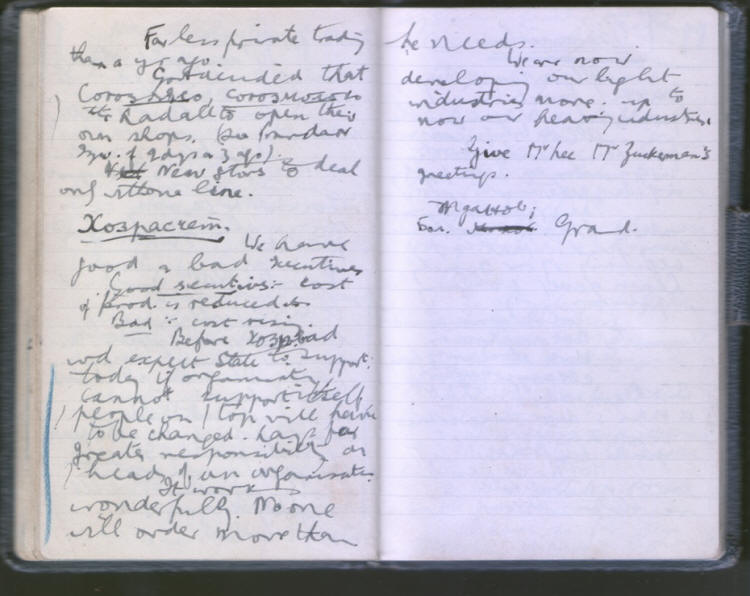 Far less private trading
than a yr ago.
decided that
had all to open their
own shops. (see
New stores to deal
only with one line.
Хозрасчет.
We have
good & bad executives
Good executives:- cost
of prod. is reduced
Bad :- cost rising.
Before Хозр. bad
wd expect State to support.
today if organisation
cannot support itself
people on top will have
to be changed. far
greater responsibility on
head of an organisation.
It works
wonderfully. No one
will order more than
he needs.
We are now
developing our light
industries more. up to
now our heavy industries.
Give Mr Lee Mr Zuckerman's
greetings.
Grad.